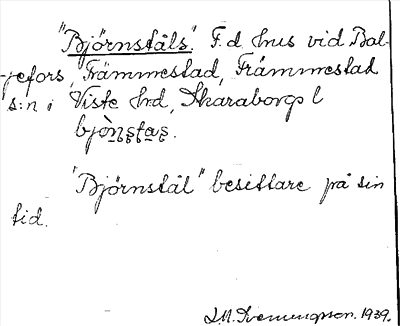 "Björnståls". F.d. hus vid Bal-
jefors, Främmestad, Främmestad
s:n i Viste h:d, Skaraborgs l
bjò̤n̥s̥t̥a̤s̥.
"Björnstål" besittare på sin
tid.
1939.